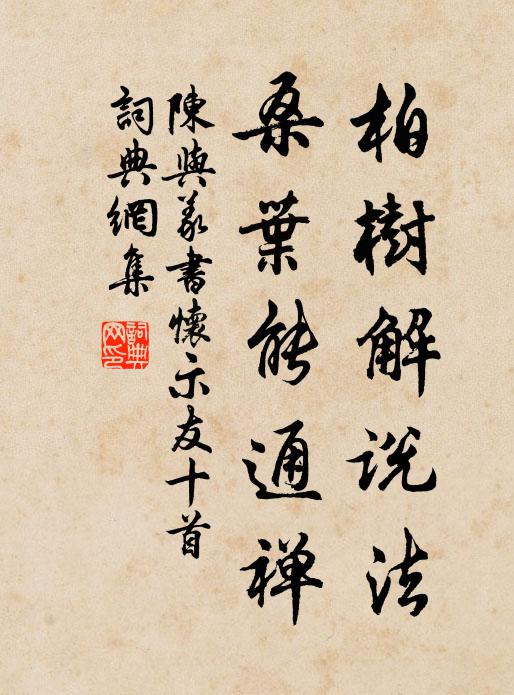 柏樹解說法
桑葉能通禪
陳與義書懷示友十首
詞典網集
詞典網印